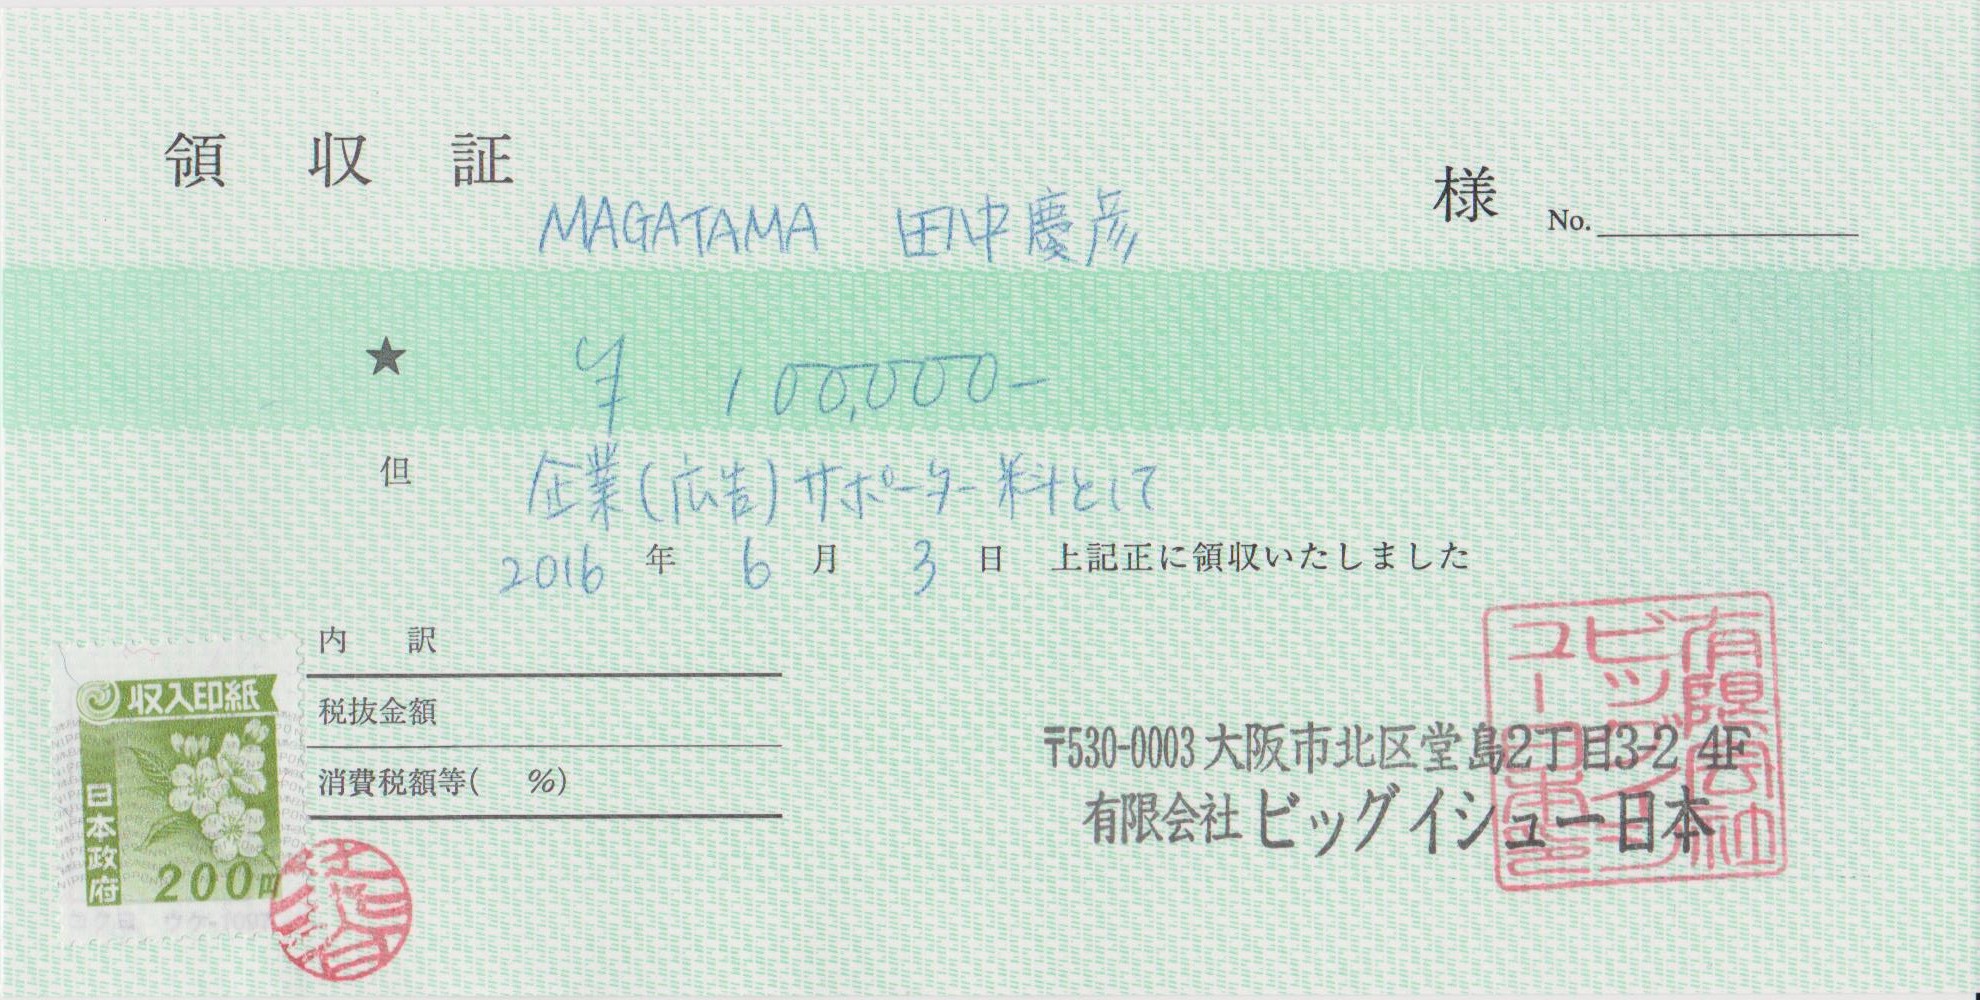 領収証
MAGATAMA 田中慶彦 様 No.
★ ¥100,000-
但 企業(広告)サポーター料として
2016年6月3日 上記正に領収いたしました
内訳
税抜金額
消費税額等( %)
収入印紙
日本政府
200円
〒530-0003大阪市北区堂島2丁目3-2 4F
有限会社ビッグイシュー日本
有限会社
ビッグイシ
ュー日本